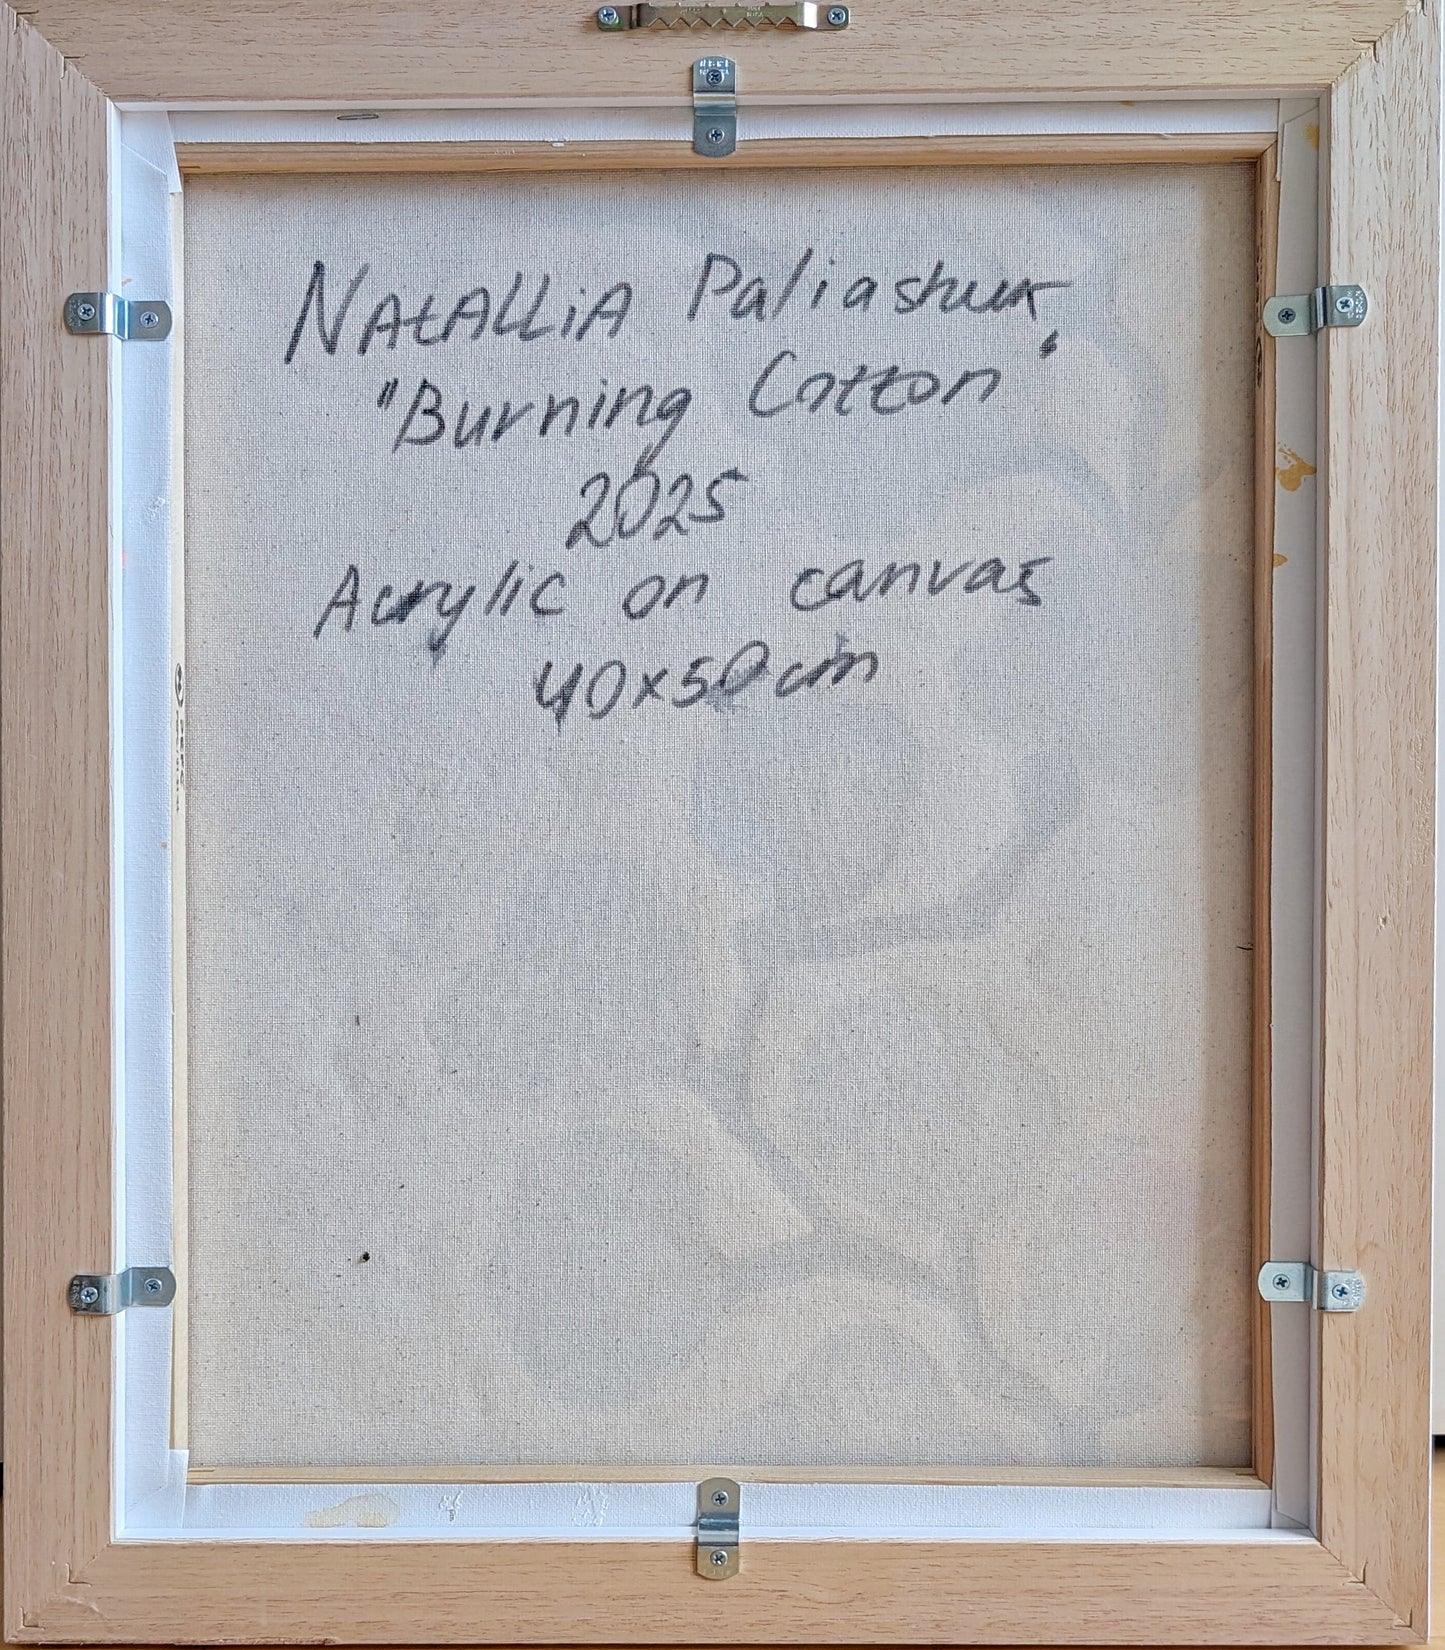 NatALLiA Paliashuk,
"Burning Cotton"
2025
Acrylic on canvas
40x50cm